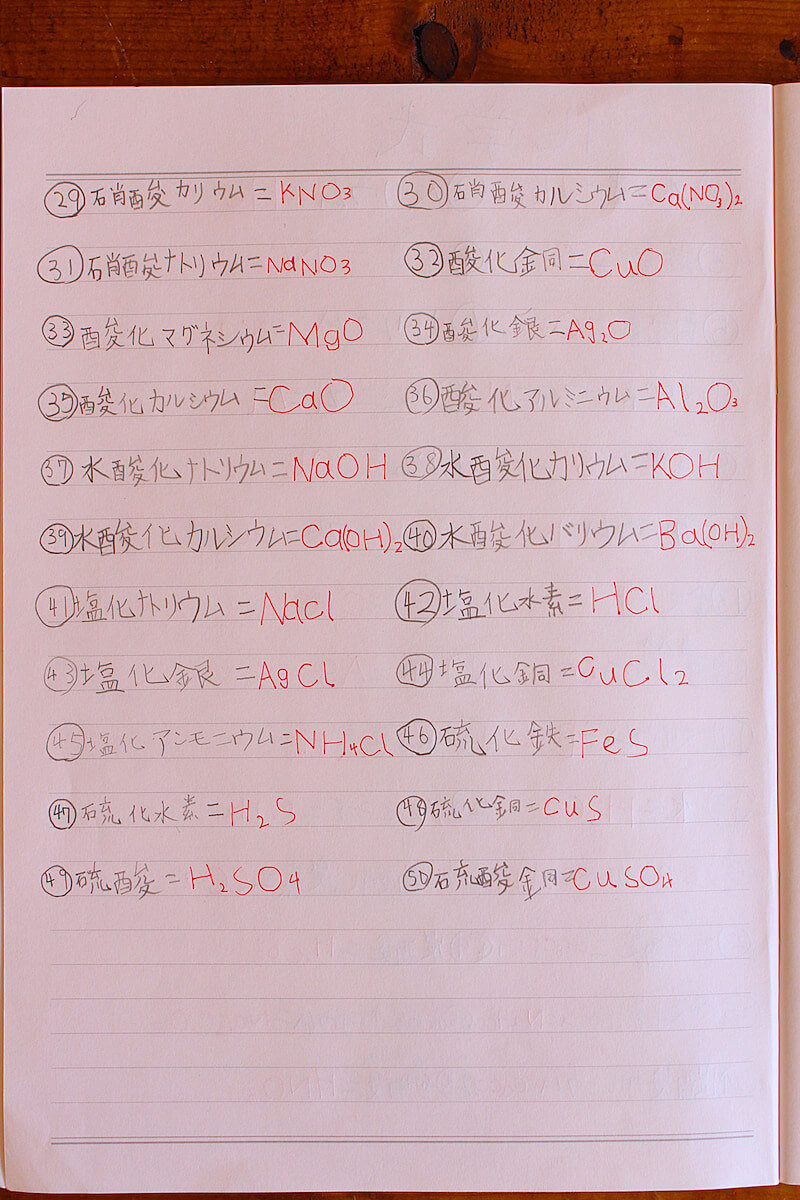 ㉙硝酸カリウム=KNO₃ ㉚硝酸カルシウム=Ca(NO₃)₂
㉛硝酸ナトリウム=NaNO₃ ㉜酸化銅=CuO
㉝酸化マグネシウム=MgO ㉞酸化銀=Ag₂O
㉟酸化カルシウム=CaO ㊱酸化アルミニウム=Al₂O₃
㊲水酸化ナトリウム=NaOH ㊳水酸化カリウム=KOH
㊴水酸化カルシウム=Ca(OH)₂ ㊵水酸化バリウム=Ba(OH)₂
㊶塩化ナトリウム=Nacl ㊷塩化水素=HCl
㊸塩化銀=AgCl ㊹塩化銅=CuCl₂
㊺塩化アンモニウム=NH₄Cl ㊻硫化鉄=FeS
㊼硫化水素=H₂S ㊽硫化銅=CuS
㊾硫酸=H₂SO₄ ㊿硫酸銅=CuSO₄